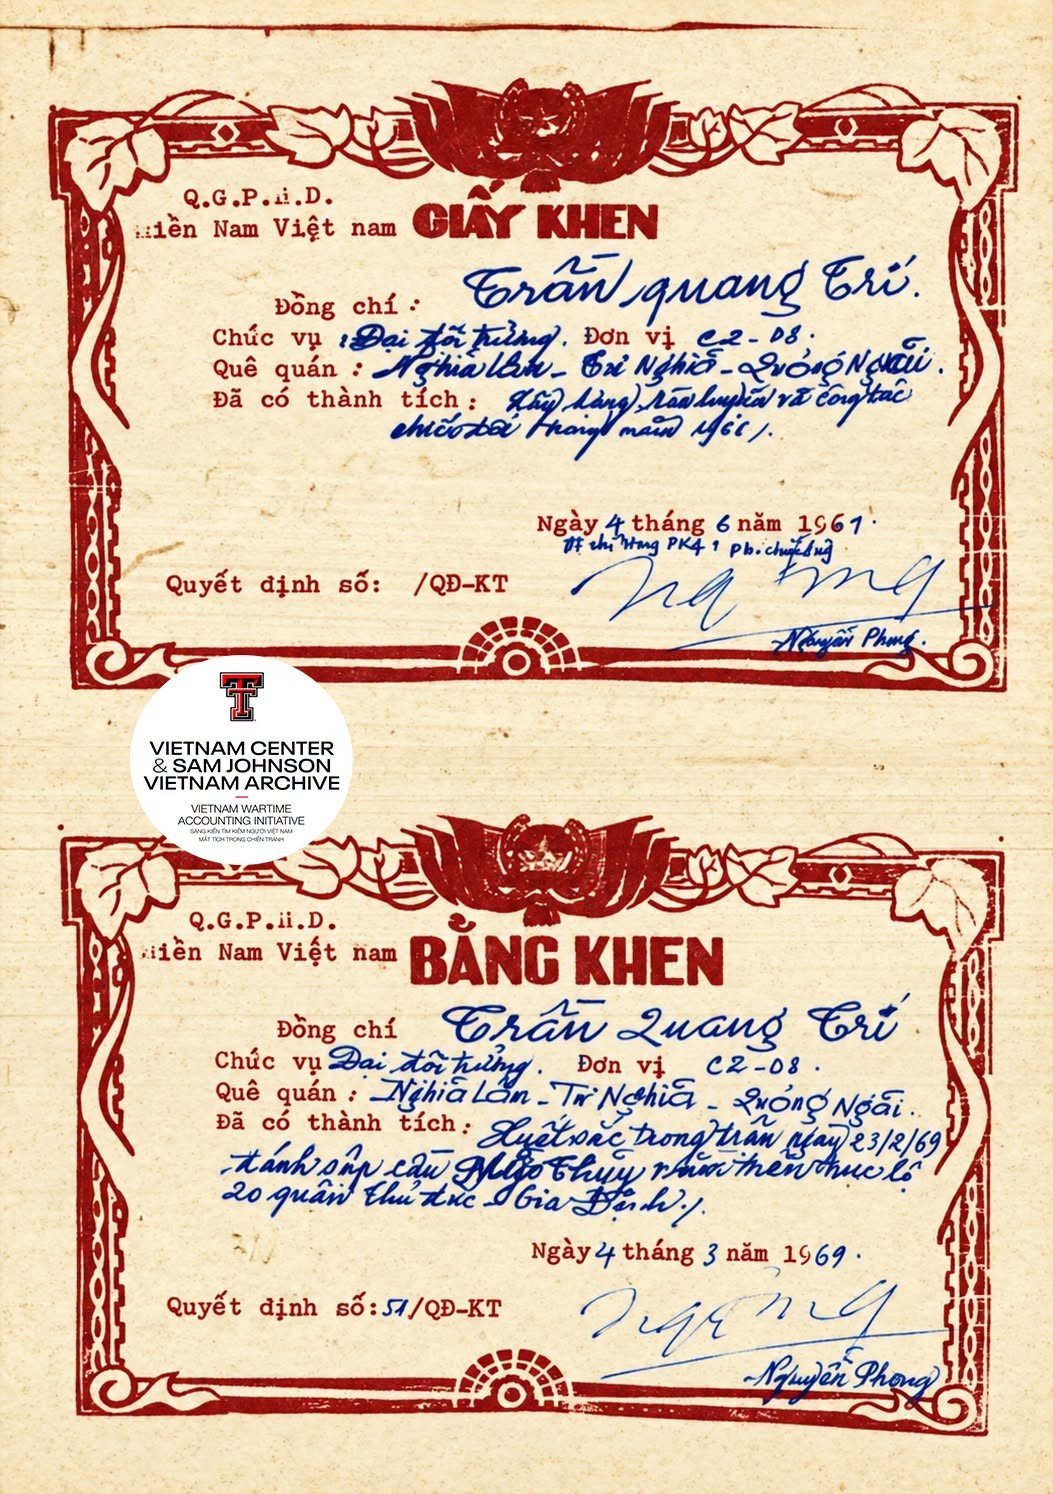 Q.G.P.H.D.
Miền Nam Việt nam
GIẤY KHEN
Đồng chí : Trần quang Trí.
Chức vụ : Đại đội trưởng. Đơn vị C2-D8.
Quê quán : Nghĩa Lâm - Tư Nghĩa - Quảng Ngãi.
Đã có thành tích : và công tác
chiến đấu trong năm
Ngày 4 tháng 6 năm 196
PK4
Quyết định số: /QĐ-KT
Nguyễn Phong.
VIETNAM CENTER
& SAM JOHNSON
VIETNAM ARCHIVE
VIETNAM WARTIME
ACCOUNTING INITIATIVE
SÁNG KIẾN TÌM KIẾM NGƯỜI VIỆT NAM
MẤT TÍCH TRONG CHIẾN TRANH
Q.G.P.H.D.
Miền Nam Việt nam
BẰNG KHEN
Đồng chí Trần Quang Trí
Chức vụ Đại đội trưởng. Đơn vị C2-D8.
Quê quán : Nghĩa Lâm - Tư Nghĩa - Quảng Ngãi.
Đã có thành tích : Xuất sắc trong trận ngày 23/2/69
đánh sập cầu trên trục lộ
20 quận Thủ đức - Gia Định./.
Ngày 4 tháng 3 năm 1969.
Quyết định số:51/QĐ-KT
Nguyễn Phong